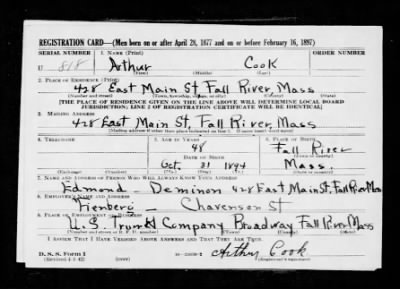 REGISTRATION CARD—(Men born on or after April 28, 1877 and on or before February 16, 1897)
SERIAL NUMBER 1. NAME (Print) ORDER NUMBER
U 818 Arthur Cook
(First) (Middle) (Last)
2. PLACE OF RESIDENCE (Print)
428 East Main St Fall River Mass
(Number and street) (Town, township, village, or city) (County) (State)
[THE PLACE OF RESIDENCE GIVEN ON THE LINE ABOVE WILL DETERMINE LOCAL BOARD
JURISDICTION; LINE 2 OF REGISTRATION CERTIFICATE WILL BE IDENTICAL]
3. MAILING ADDRESS
428 East Main St, Fall River, Mass
[Mailing address if other than place indicated on line 2. If same insert word same]
4. TELEPHONE 5. AGE IN YEARS 6. PLACE OF BIRTH
48 Fall River
DATE OF BIRTH
Oct. 31 1894 Mass.
(Exchange) (Number) (Mo.) (Day) (Yr.) (State or country)
7. NAME AND ADDRESS OF PERSON WHO WILL ALWAYS KNOW YOUR ADDRESS
Edmond - Deminon 428 East Main St, Fall River Mass
8. EMPLOYER'S NAME AND ADDRESS
Chavenson St
9. PLACE OF EMPLOYMENT OR BUSINESS
U.S. Trunk Company Broadway Fall River Mass
(Number and street or R. F. D. number) (Town) (County) (State)
I AFFIRM THAT I HAVE VERIFIED ABOVE ANSWERS AND THAT THEY ARE TRUE.
D. S. S. Form 1
(Revised 4-1-42) Arthur Cook
(Registrant's signature)